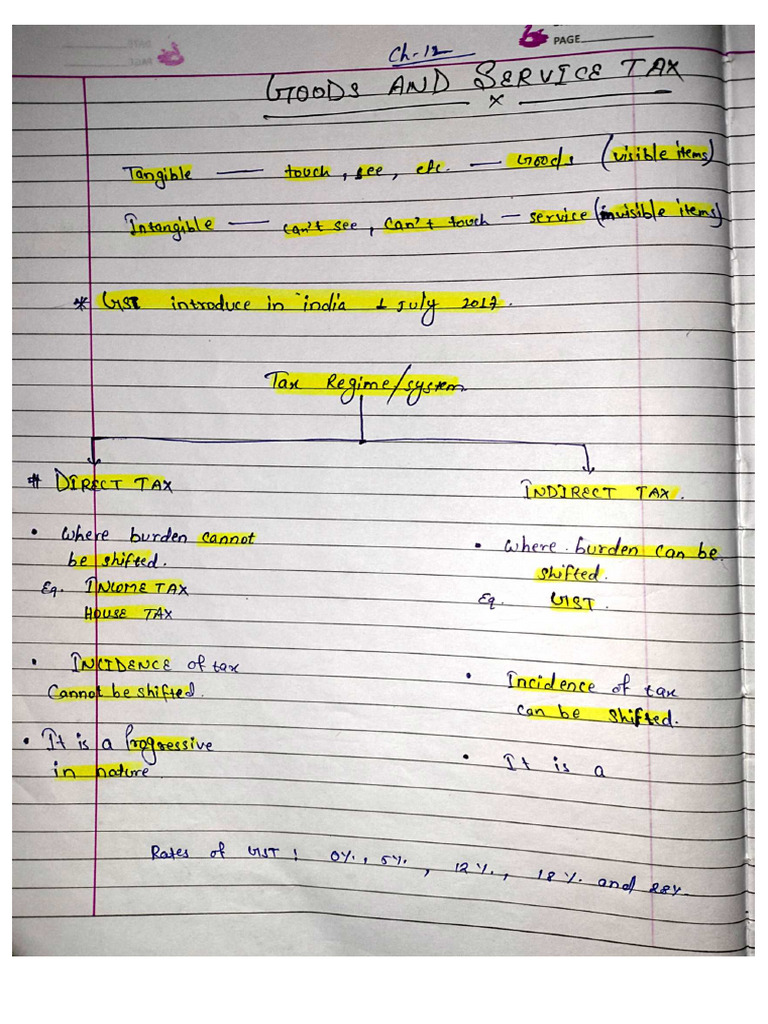 PAGE
Ch-12
GOODS AND SERVICE TAX
x
Tangible — touch, see, etc. — Goods (visible items)
Intangible — can't see, can't touch — service (invisible items)
* GST introduce in india 1 July 2017.
Tax Regime/system
# DIRECT TAX
• Where burden cannot
be shifted.
Eg. INCOME TAX
HOUSE TAX
• INCIDENCE of tax
Cannot be shifted.
• It is a Progressive
in nature.
INDIRECT TAX.
• Where burden can be
shifted.
Eg. GST.
• Incidence of tax
can be shifted.
• It is a
Rates of GST : 0%, 5%, 12%, 18% and 28%.